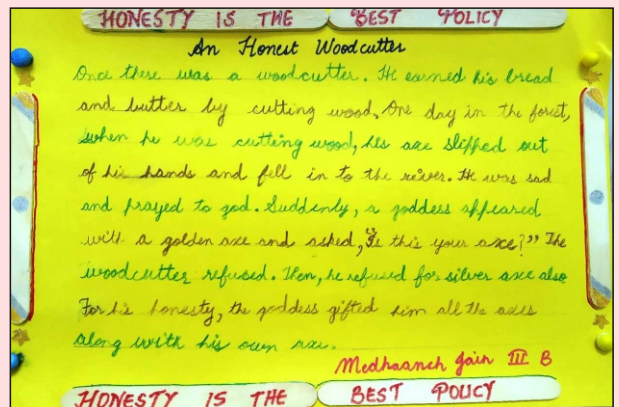 HONESTY IS THE BEST POLICY
An Honest Woodcutter
Once there was a woodcutter. He earned his bread
and butter by cutting wood. One day in the forest,
when he was cutting wood, his axe slipped out
of his hands and fell in to the river. He was sad
and prayed to god. Suddenly, a goddess appeared
with a golden axe and asked, "Is this your axe?" The
woodcutter refused. Then, he refused for silver axe also.
For his honesty, the goddess gifted him all the axes
along with his own axe.
Medhaansh Jain III B
HONESTY IS THE BEST POLICY